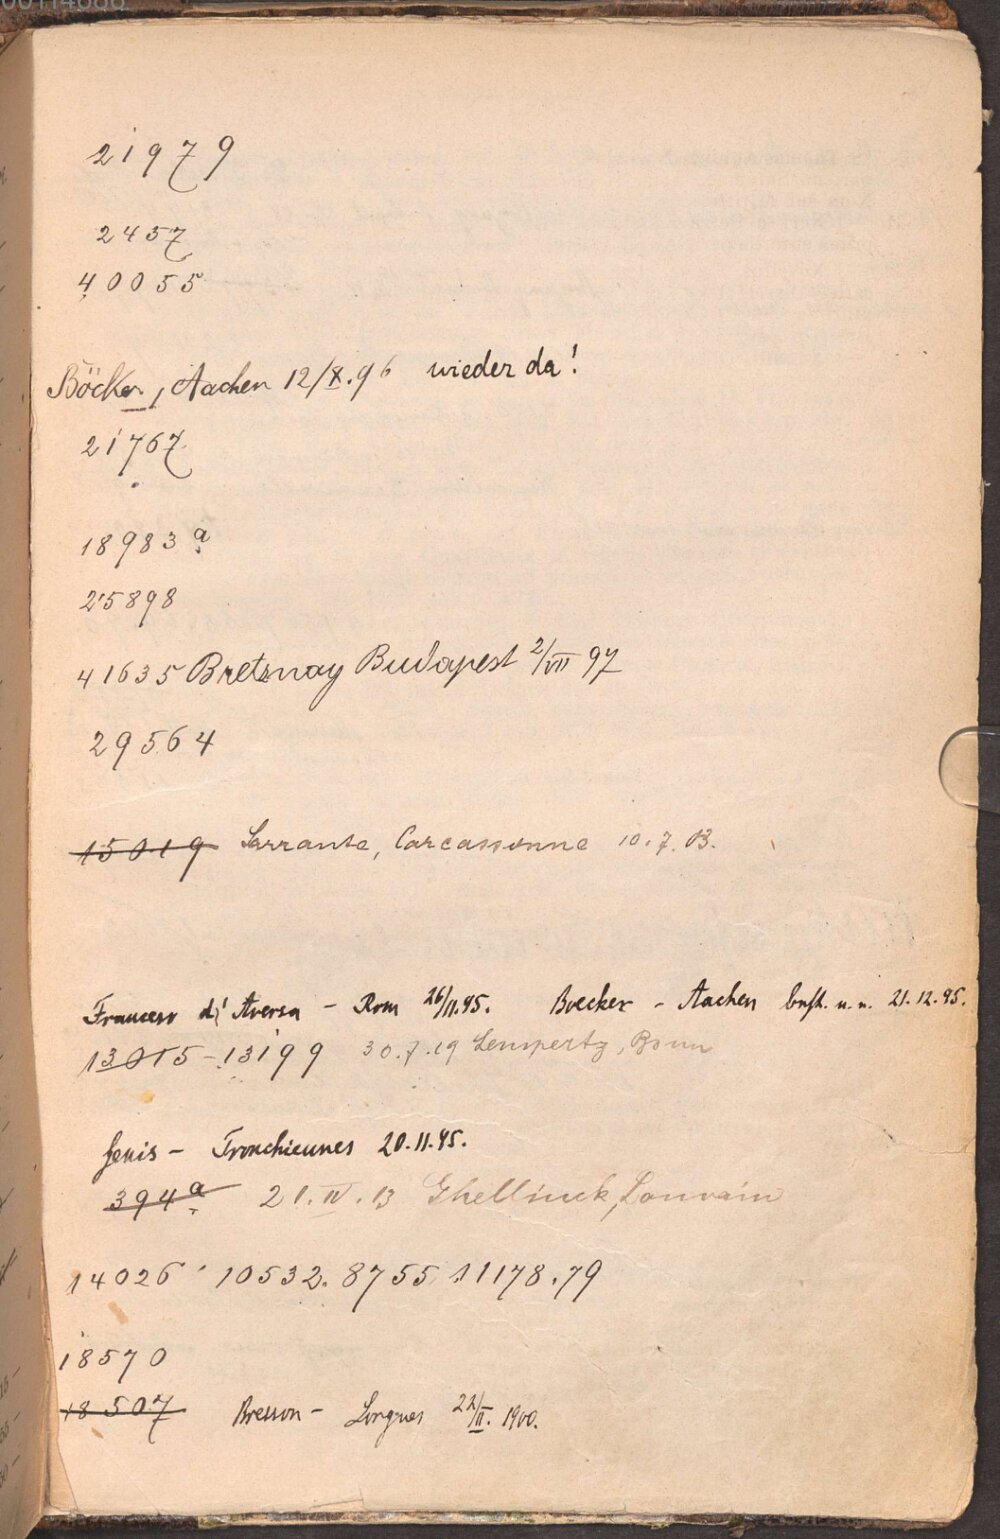 21979
2457
40055
Böcker, Aachen 12/X.96 wieder da!
21767
18983a
25898
41635 Bretznay Budapest 2/VII 97
29564
15019 Sarrante, Carcassonne 10.7.03.
Francesco d'Aversa - Rom 26/11.95. Boecker - Aachen 21.12.95.
13015-13199 30.7.19 Lempertz, Bonn
Senis - Tronchiennes 20.11.95.
394a 21.IV.13 Ghellinck, Louvain
14026 10532. 8755 11178.79
18570
18507 Bresson - Lorgues 22/II. 1900.